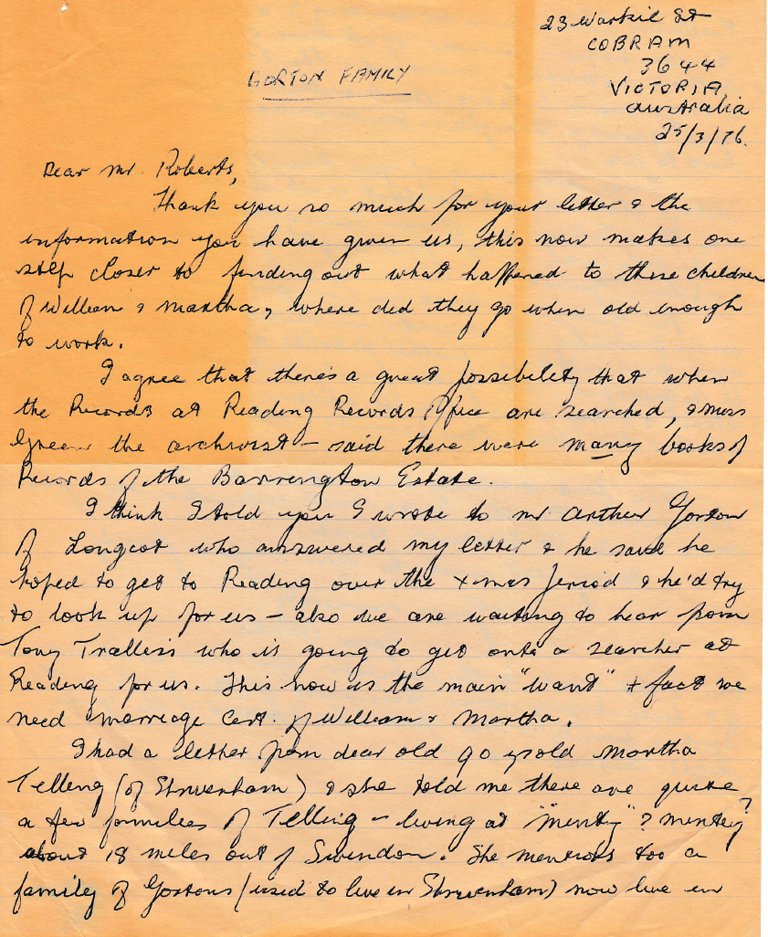 23 Warkil St
COBRAM
3644
VICTORIA
Australia
25/3/76.
GORTON FAMILY
Dear Mr. Roberts,
Thank you so much for your letter & the
information you have given us, this now makes one
step closer to finding out what happened to these children
of William & Martha, where did they go when old enough
to work.
I agree that there's a great possibility that when
the Records at Reading Records Office are searched, & Miss
Green the archivist - said there were many books of
Records of the Barrington Estate.
I think I told you I wrote to Mr Arthur Gorton
of Longcot who answered my letter & he said he
hoped to get to Reading over the Xmas period & he'd try
to look up for us - also we are waiting to hear from
Tony Tralless who is going to get onto a searcher at
Reading for us. This now is the main "want" & fact we
need marriage cert. of William & Martha.
I had a letter from dear old 90 yr old Martha
Telling (of Shrivenham) & she told me there are quite
a few families of Telling - living at "Minty"? Mintey?
about 18 miles out of Swindon. She mentions too a
family of Gortons (used to live in Shrivenham) now live in